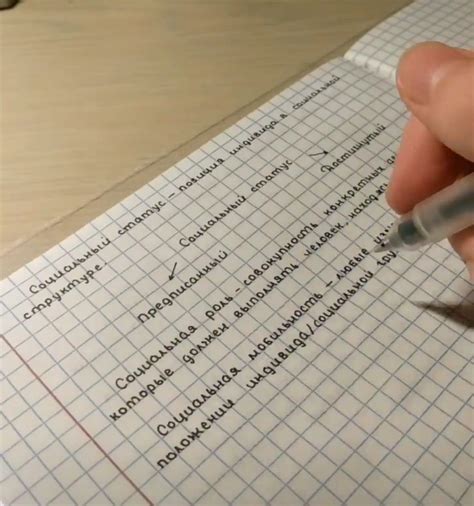 Социальный статус – позиция индивида в социальной
структуре.
Социальный статус
Предписанный Достигнутый
Социальная роль – совокупность конкретных
которые должен выполнять человек,
Социальная мобильность – любые
положений индивида/социальной